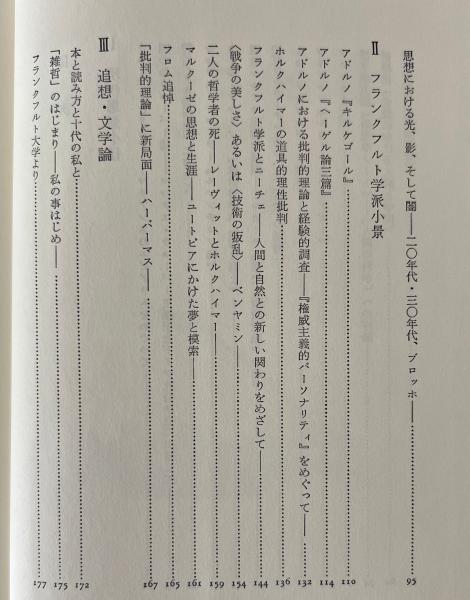 思想における光、影、そして闇——二〇年代・三〇年代、ブロッホ——……95
Ⅱ フランクフルト学派小景
アドルノ『キルケゴール』……110
アドルノ『ヘーゲル論三篇』……114
アドルノにおける批判的理論と経験的調査——『権威主義的パーソナリティ』をめぐって——……132
ホルクハイマーの道具的理性批判……136
フランクフルト学派とニーチェ——人間と自然との新しい関わりをめざして——……144
〈戦争の美しさ〉あるいは〈技術の叛乱〉——ベンヤミン——……154
二人の哲学者の死——レーヴィットとホルクハイマー——……159
マルクーゼの思想と生涯——ユートピアにかけた夢と模索——……161
フロム追悼……165
「批判的理論」に新局面——ハーバーマス——……167
Ⅲ 追想・文学論
本と読み方と十代の私と……172
「雑哲」のはじまり——私の事はじめ——……175
フランクフルト大学より……177